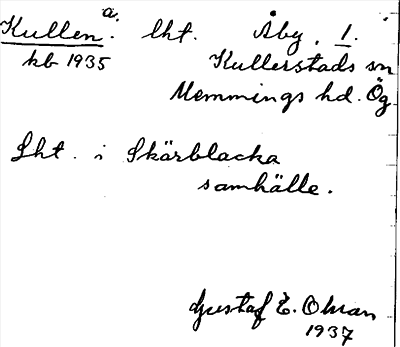 Kullen a. lht. Åby, 1.
kb 1935 Kullerstads sn
Memmings hd. Ög
Lht. i Skärblacka
samhälle.
Gustaf E. Ohman
1937